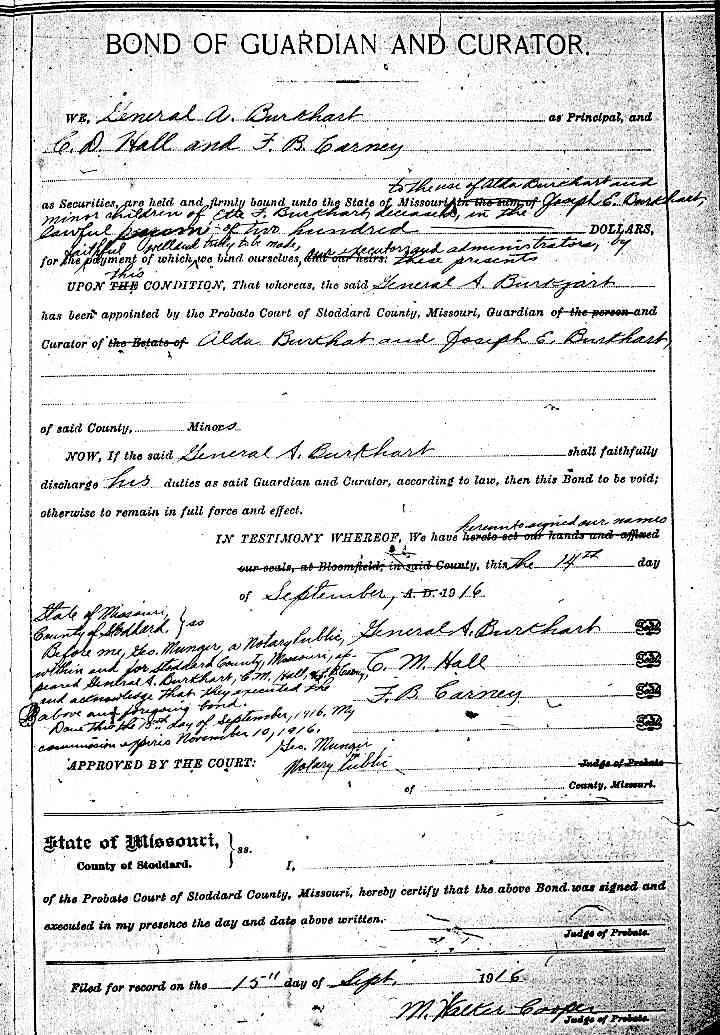 BOND OF GUARDIAN AND CURATOR.
WE, General A. Burkhart as Principal, and
C. D. Hall and F. B. Carney
to the use of Alda Burkhart and
as Securities, are held and firmly bound unto the State of Missouri, in the sum of Joseph E. Burkhart,
minor children of Etta F. Burkhart, deceased, in the
lawful of two hundred DOLLARS,
faithful well and truly to be made,
for the payment of which, we bind ourselves, and our heirs. our executors and administrators, by these presents
UPON THE this CONDITION, That whereas, the said General A. Burkhart
has been appointed by the Probate Court of Stoddard County, Missouri, Guardian of the person and
Curator of the Estate of Alda Burkhat and Joseph E. Burkhart,
of said County, Minors
NOW, If the said General A. Burkhart shall faithfully
discharge his duties as said Guardian and Curator, according to law, then this Bond to be void;
otherwise to remain in full force and effect.
hereunto signed our names
IN TESTIMONY WHEREOF, We have hereto set our hands and affixed
our seals, at Bloomfield, in said County, this the 14th day
of September, A. D. 1916.
State of Missouri,
County of Stoddard, } ss
Before me, Geo. Munger, a Notary Public,
within and for Stoddard County, Missouri, ap-
peared General A. Burkhart, C. M. Hall, & F. B. Carney,
and acknowledge that they executed the
above and foregoing bond.
Done this the day of September, 1916. My
commission expires November 10, 1916.
Geo. Munger
Notary Public
General A. Burkhart Seal
C. M. Hall Seal
F. B. Carney Seal
Seal
APPROVED BY THE COURT: Judge of Probate
of County, Missouri.
State of Missouri,
County of Stoddard. } ss.
I,
of the Probate Court of Stoddard County, Missouri, hereby certify that the above Bond was signed and
executed in my presence the day and date above written.
Judge of Probate.
Filed for record on the 15" day of Sept. 1916
M. Walker Cooper
Judge of Probate.